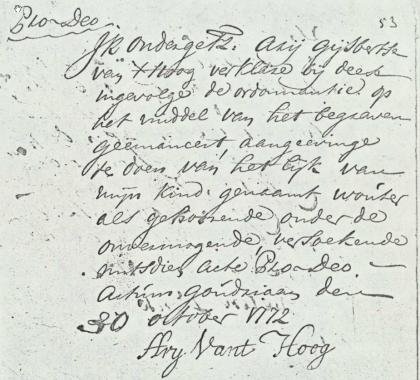 Pro Deo
53
Jk ondergetk: Arij Gijsbertsz
van t Hoog verklare bij dese
ingevolge de ordonnantie op
het middel van het begraven
geëmaneert aangeevinge
te doen van het lijk van
mijn kind genaamt wouter
als gehoorende onder de
onvermogende versoekende
mitsdien acte Pro-Deo.
Actum goudriaan den
30 october 1772
Ary Vant Hoog